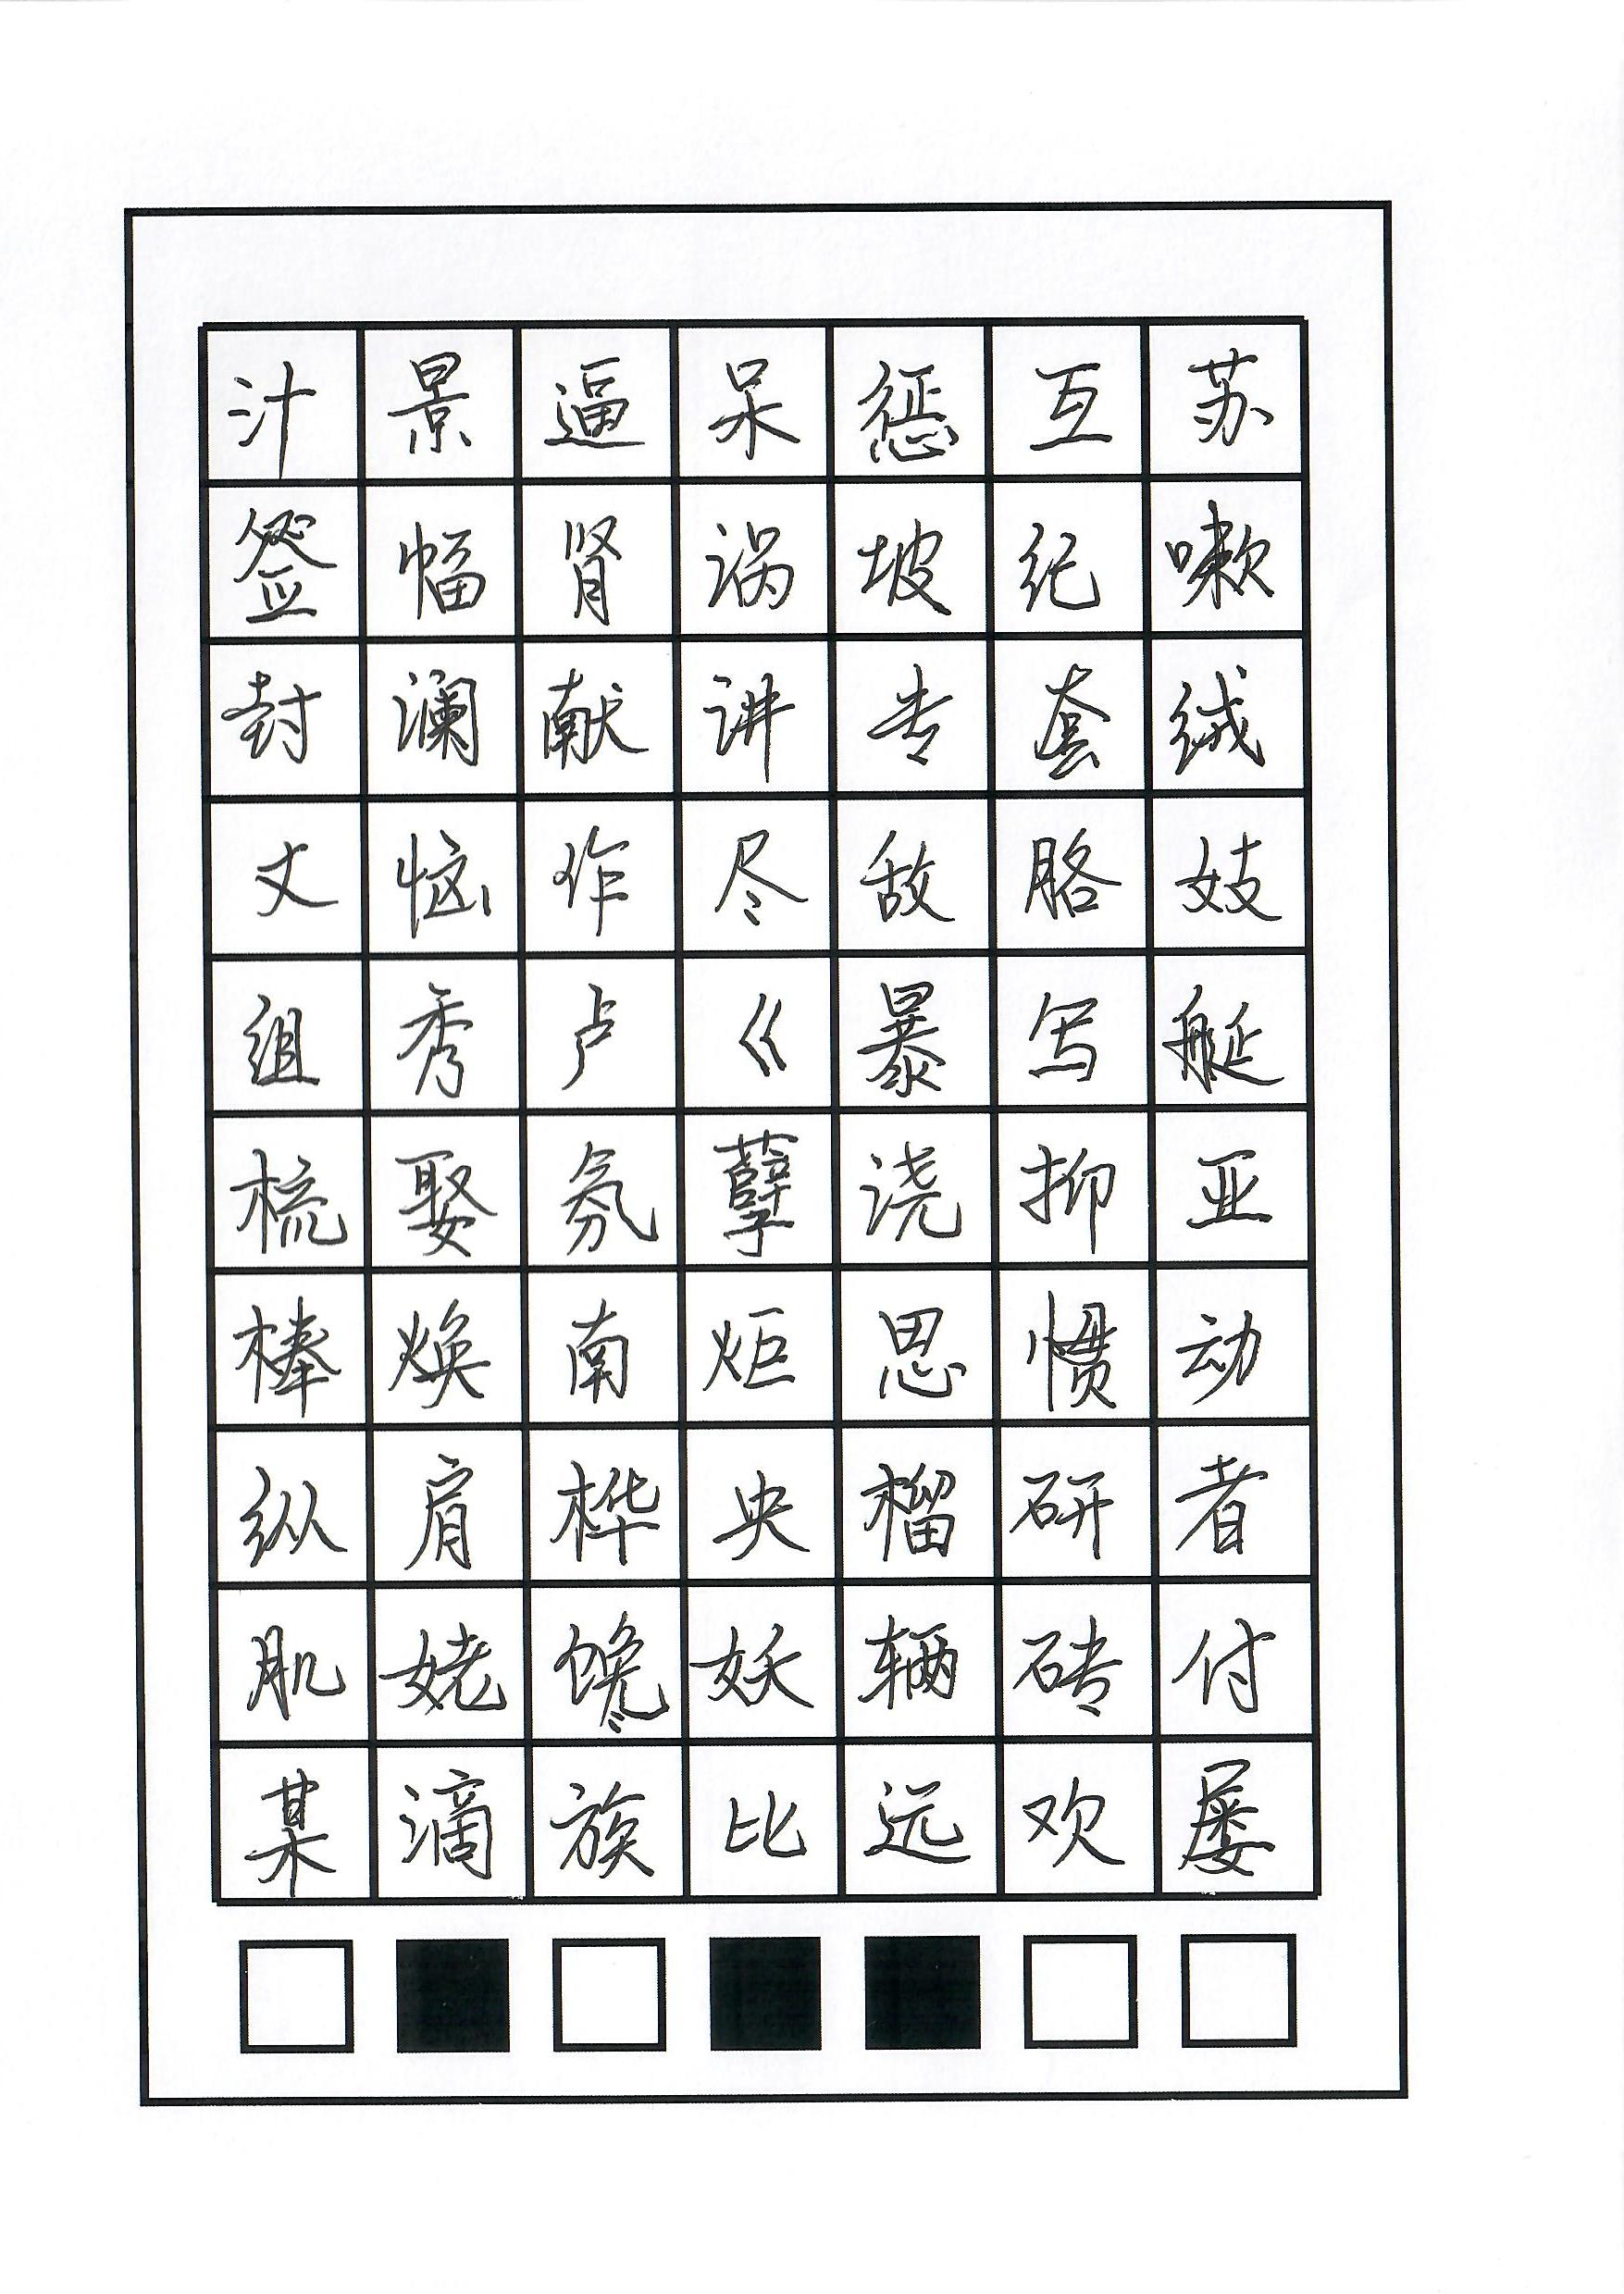 汁景逼呆惩互苏
幅肾涡坡纪嗽
封澜献讲专套绒
丈恼尽敌胳妓
组秀卢巜暴写艇
梳娶氛孽浇抑亚
棒焕南炬思惯动
纵肩桦央榴研者
肌姥馋妖辆砖付
某滴族比远欢屡